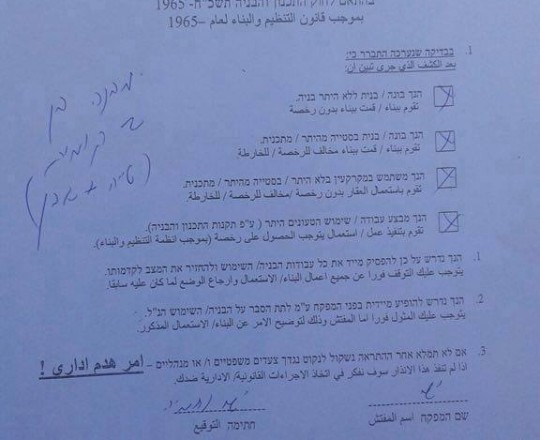 בהתאם לחוק התכנון והבניה תשכ"ח- 1965
بموجب قانون التنظيم والبناء لعام –1965
1. בבדיקה שנערכה התברר כי:
بعد الكشف الذي جرى تبين ان:
הנך בונה / בנית ללא היתר בניה.
تقوم ببناء / قمت ببناء بدون رخصة
הנך בונה / בנית בסטייה מהיתר / מתכנית.
تقوم ببناء / قمت ببناء مخالف للرخصة / للخارطة.
הנך משתמש במקרקעין בלא היתר / בסטייה מהיתר / מתכנית.
تقوم باستعمال العقار بدون رخصة /مخالف للرخصة / للخارطة.
הנך מבצע עבודה / שימוש הטעונים היתר ( ע"פ תקנות התכנון והבניה).
تقوم بتنفيذ عمل / استعمال يتوجب الحصول على رخصة (بموجب انظمة التنظيم والبناء).
1. הנך נדרש על כן להפסיק מייד את כל עבודות הבניה/ השימוש ולהחזיר את המצב לקדמותו.
يتوجب عليك التوقف فورا عن جميع اعمال البناء/ الاستعمال وارجاع الوضع لما كان عليه سابقا.
2. הנך נדרש להופיע מיידית בפני המפקח ע"מ לתת הסבר על הבניה/ השימוש הנ"ל.
يتوجب عليك المثول فورا اما المفتش وذلك لتوضيح الامر عن البناء/ الاستعمال المذكور.
3. אם לא תמלא אחר ההתראה נשקול לנקוט נגדך צעדים משפטיים ו/ או מנהליים – امر هدم اداري !
اذا لم تنفذ هذا الانذار سوف نفكر في اتخاذ الاجراءات القانونية/ الادارية ضدك.
שם המפקח اسم المفتش
חתימה التوقيع